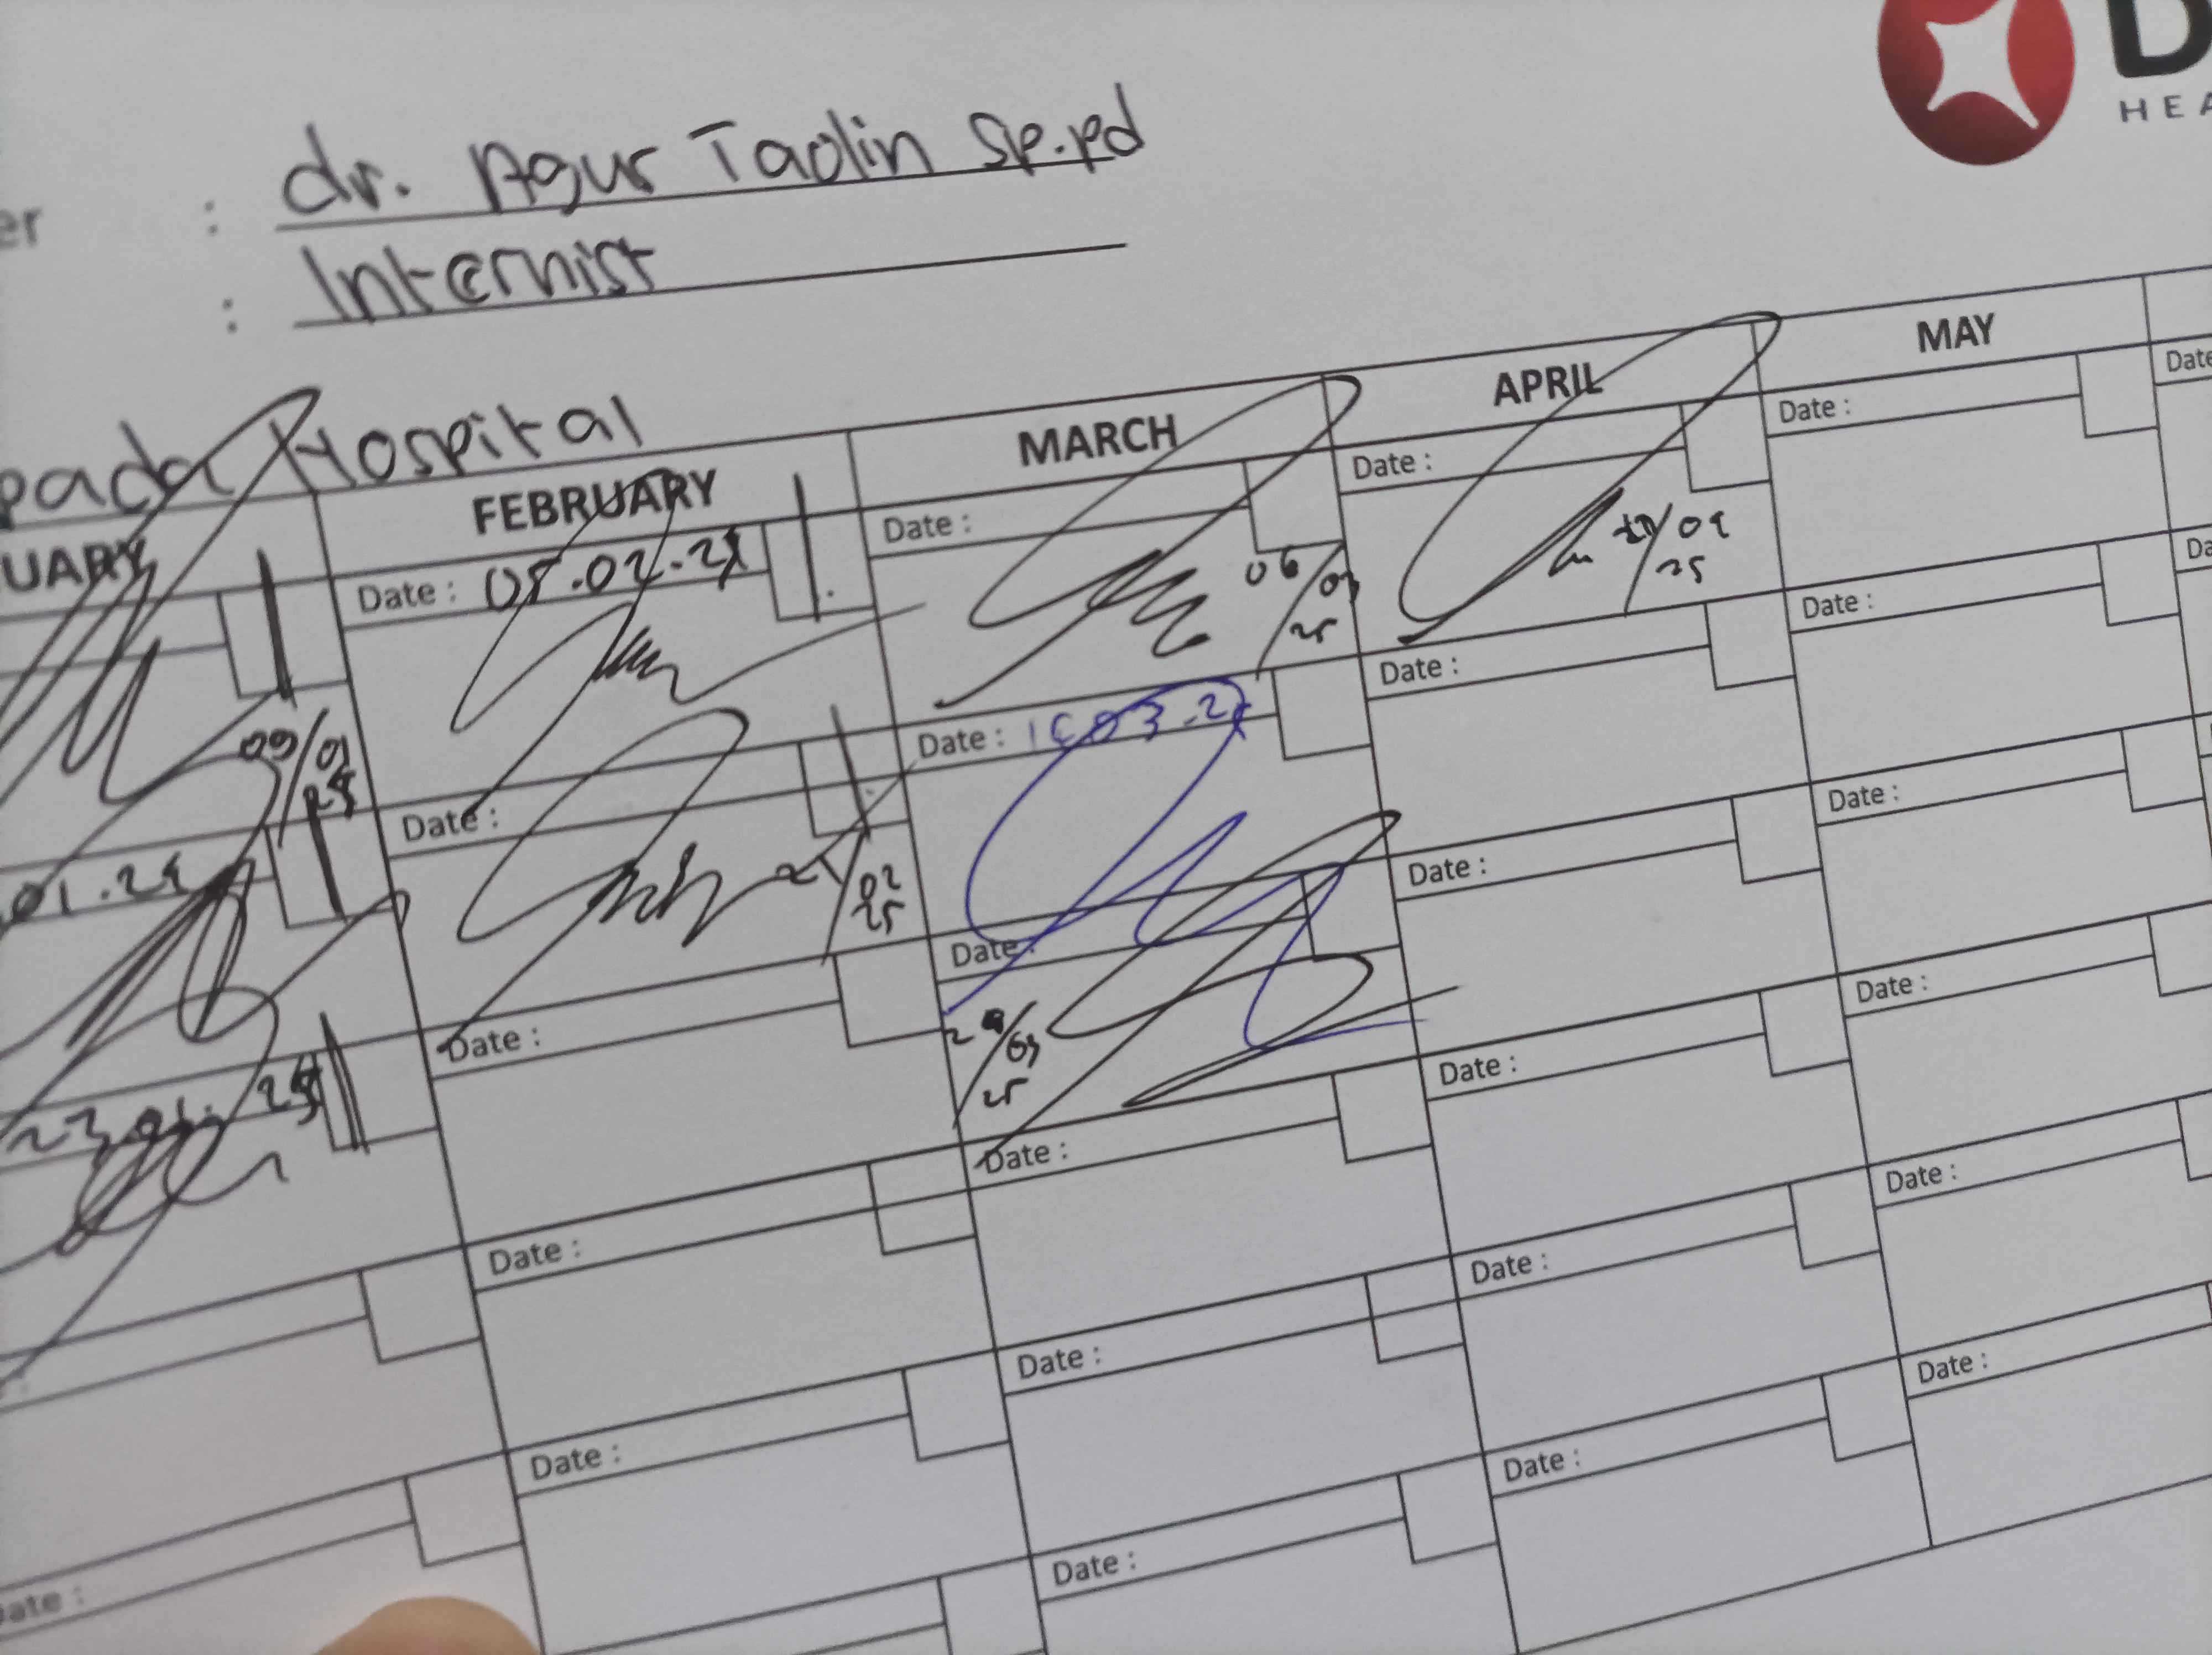 D
HEA
er : dr. Agus Taolin Sp.pd
: Internist
pada Hospital
UARY FEBRUARY MARCH APRIL MAY
Date : 05.02.25 Date : Date : Date : Date
09/01 25
06/03 25
/04 25
01.25 Date : Date : Date : Date :
/02 25
23.01.25 Date : Date : Date : Date :
/03 25
Date : Date : Date : Date :
Date : Date : Date : Date :
Date : Date : Date : Date :